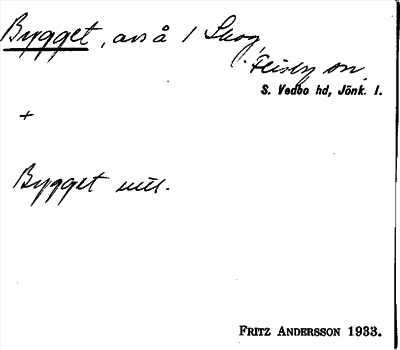 Bygget, avs å 1 Skog
Flisby sn
S. Vedbo hd, Jönk. l.
+
Bygget utt.
FRITZ ANDERSSON 1933.